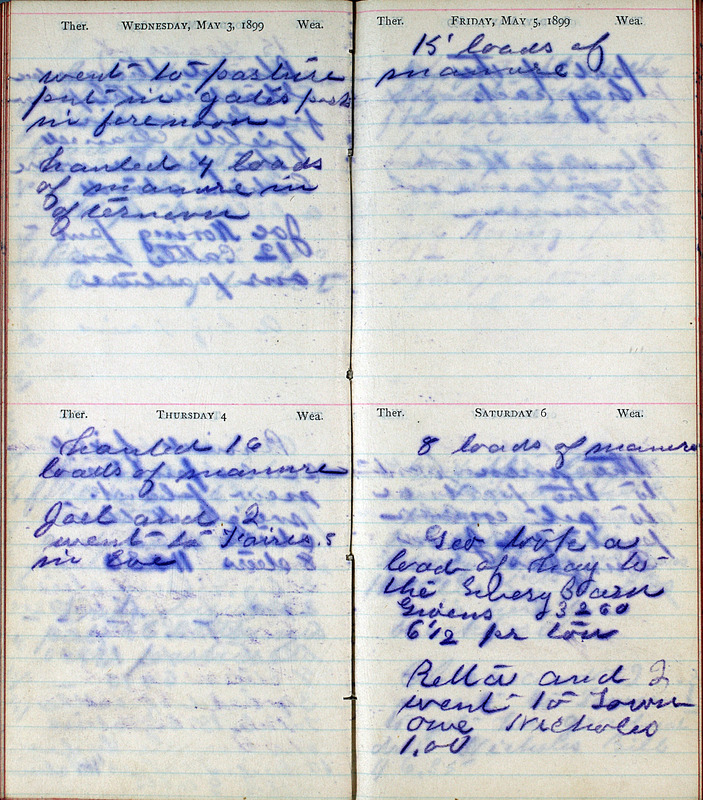 Ther. WEDNESDAY, MAY 3, 1899 Wea.
went to pasture
put in gates posts
in forenoon
hauled 4 loads
of manure in
afternoon
Ther. THURSDAY 4 Wea.
hauled 16
loads of manure
Joel and I
went to
in Eve
Ther. FRIDAY, MAY 5, 1899 Wea.
15 loads of
manure
Ther. SATURDAY 6 Wea.
8 loads of manure
Geo took a
load of hay to
the Livery Barn
Givens 3260
6 1/2 pr ton
Rella and I
went to Town
owe Nicholes
1.00